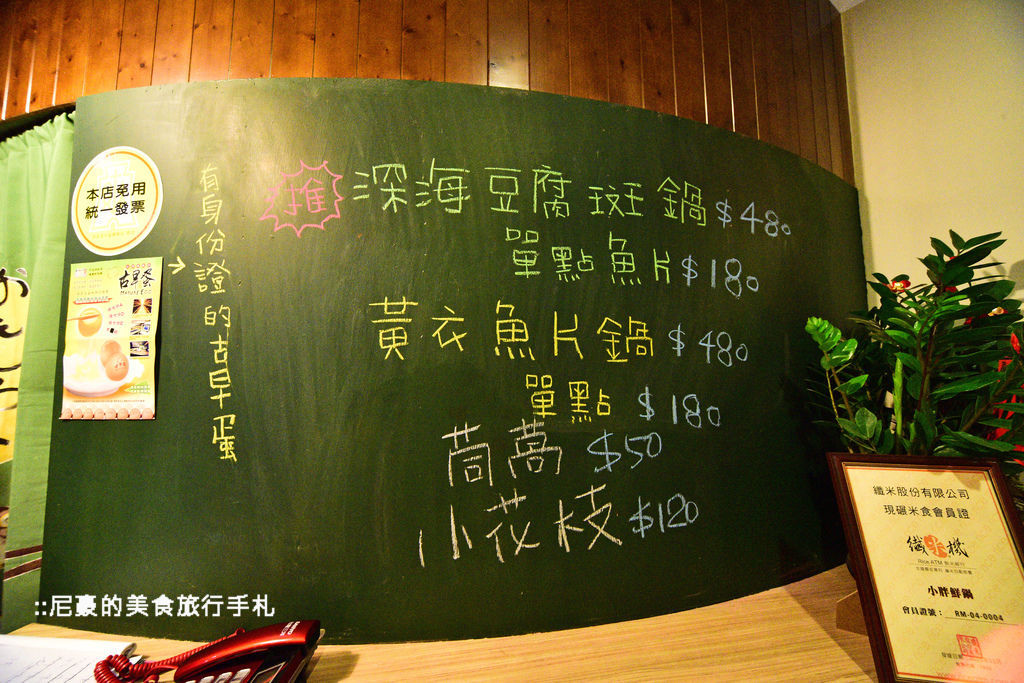 本店免用
統一發票
古早蛋
有身份證的古早蛋
推
深海豆腐斑鍋 $480
單點魚片 $180
黃衣魚片鍋 $480
單點 $180
茼蒿 $50
小花枝 $120
纖米股份有限公司
現碾米食會員證
纖米機
Rice ATM
小胖鮮鍋
會員證號： RM-04-0004
::尼豪的美食旅行手札